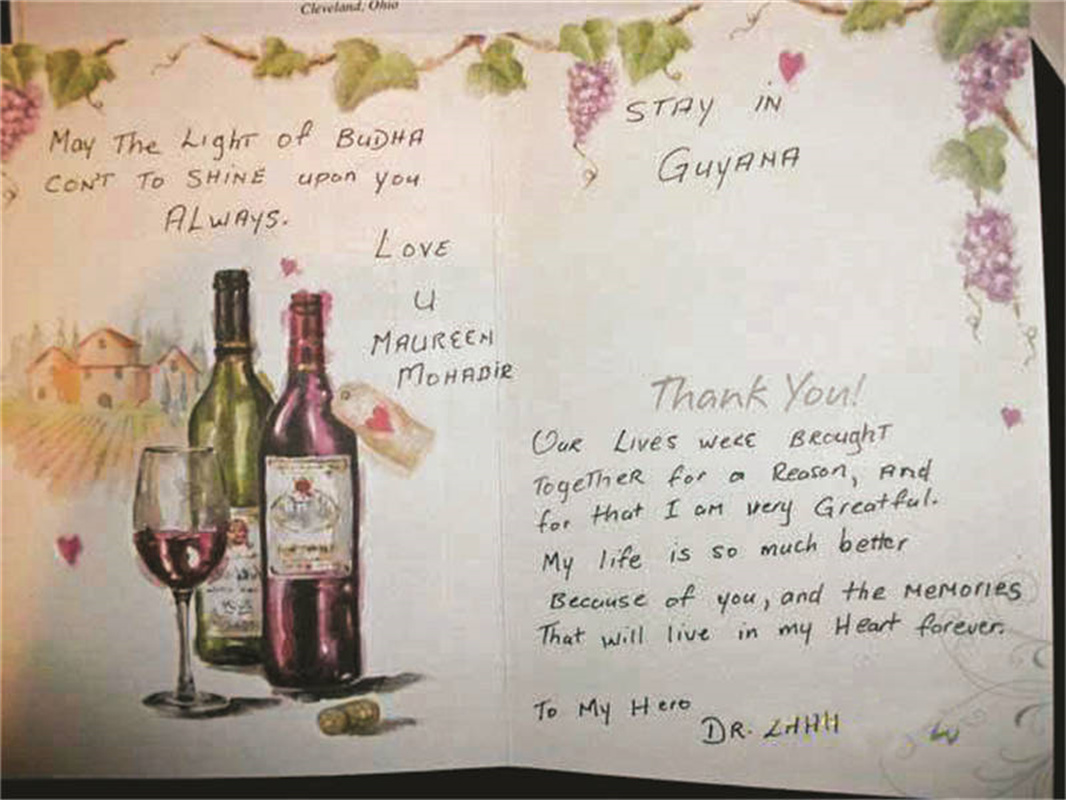 Cleveland, Ohio
May The Light of BUDHA
CON'T TO SHINE upon you
ALWAYS.
LOVE
U
MAUREEN
MOHABIR
STAY IN
GUYANA
Thank You!
Our Lives were Brought
Together for a Reason, and
for that I am very Greatful.
My life is so much better
Because of you, and the MEMORIES
That will live in my Heart forever.
To My Hero
DR.